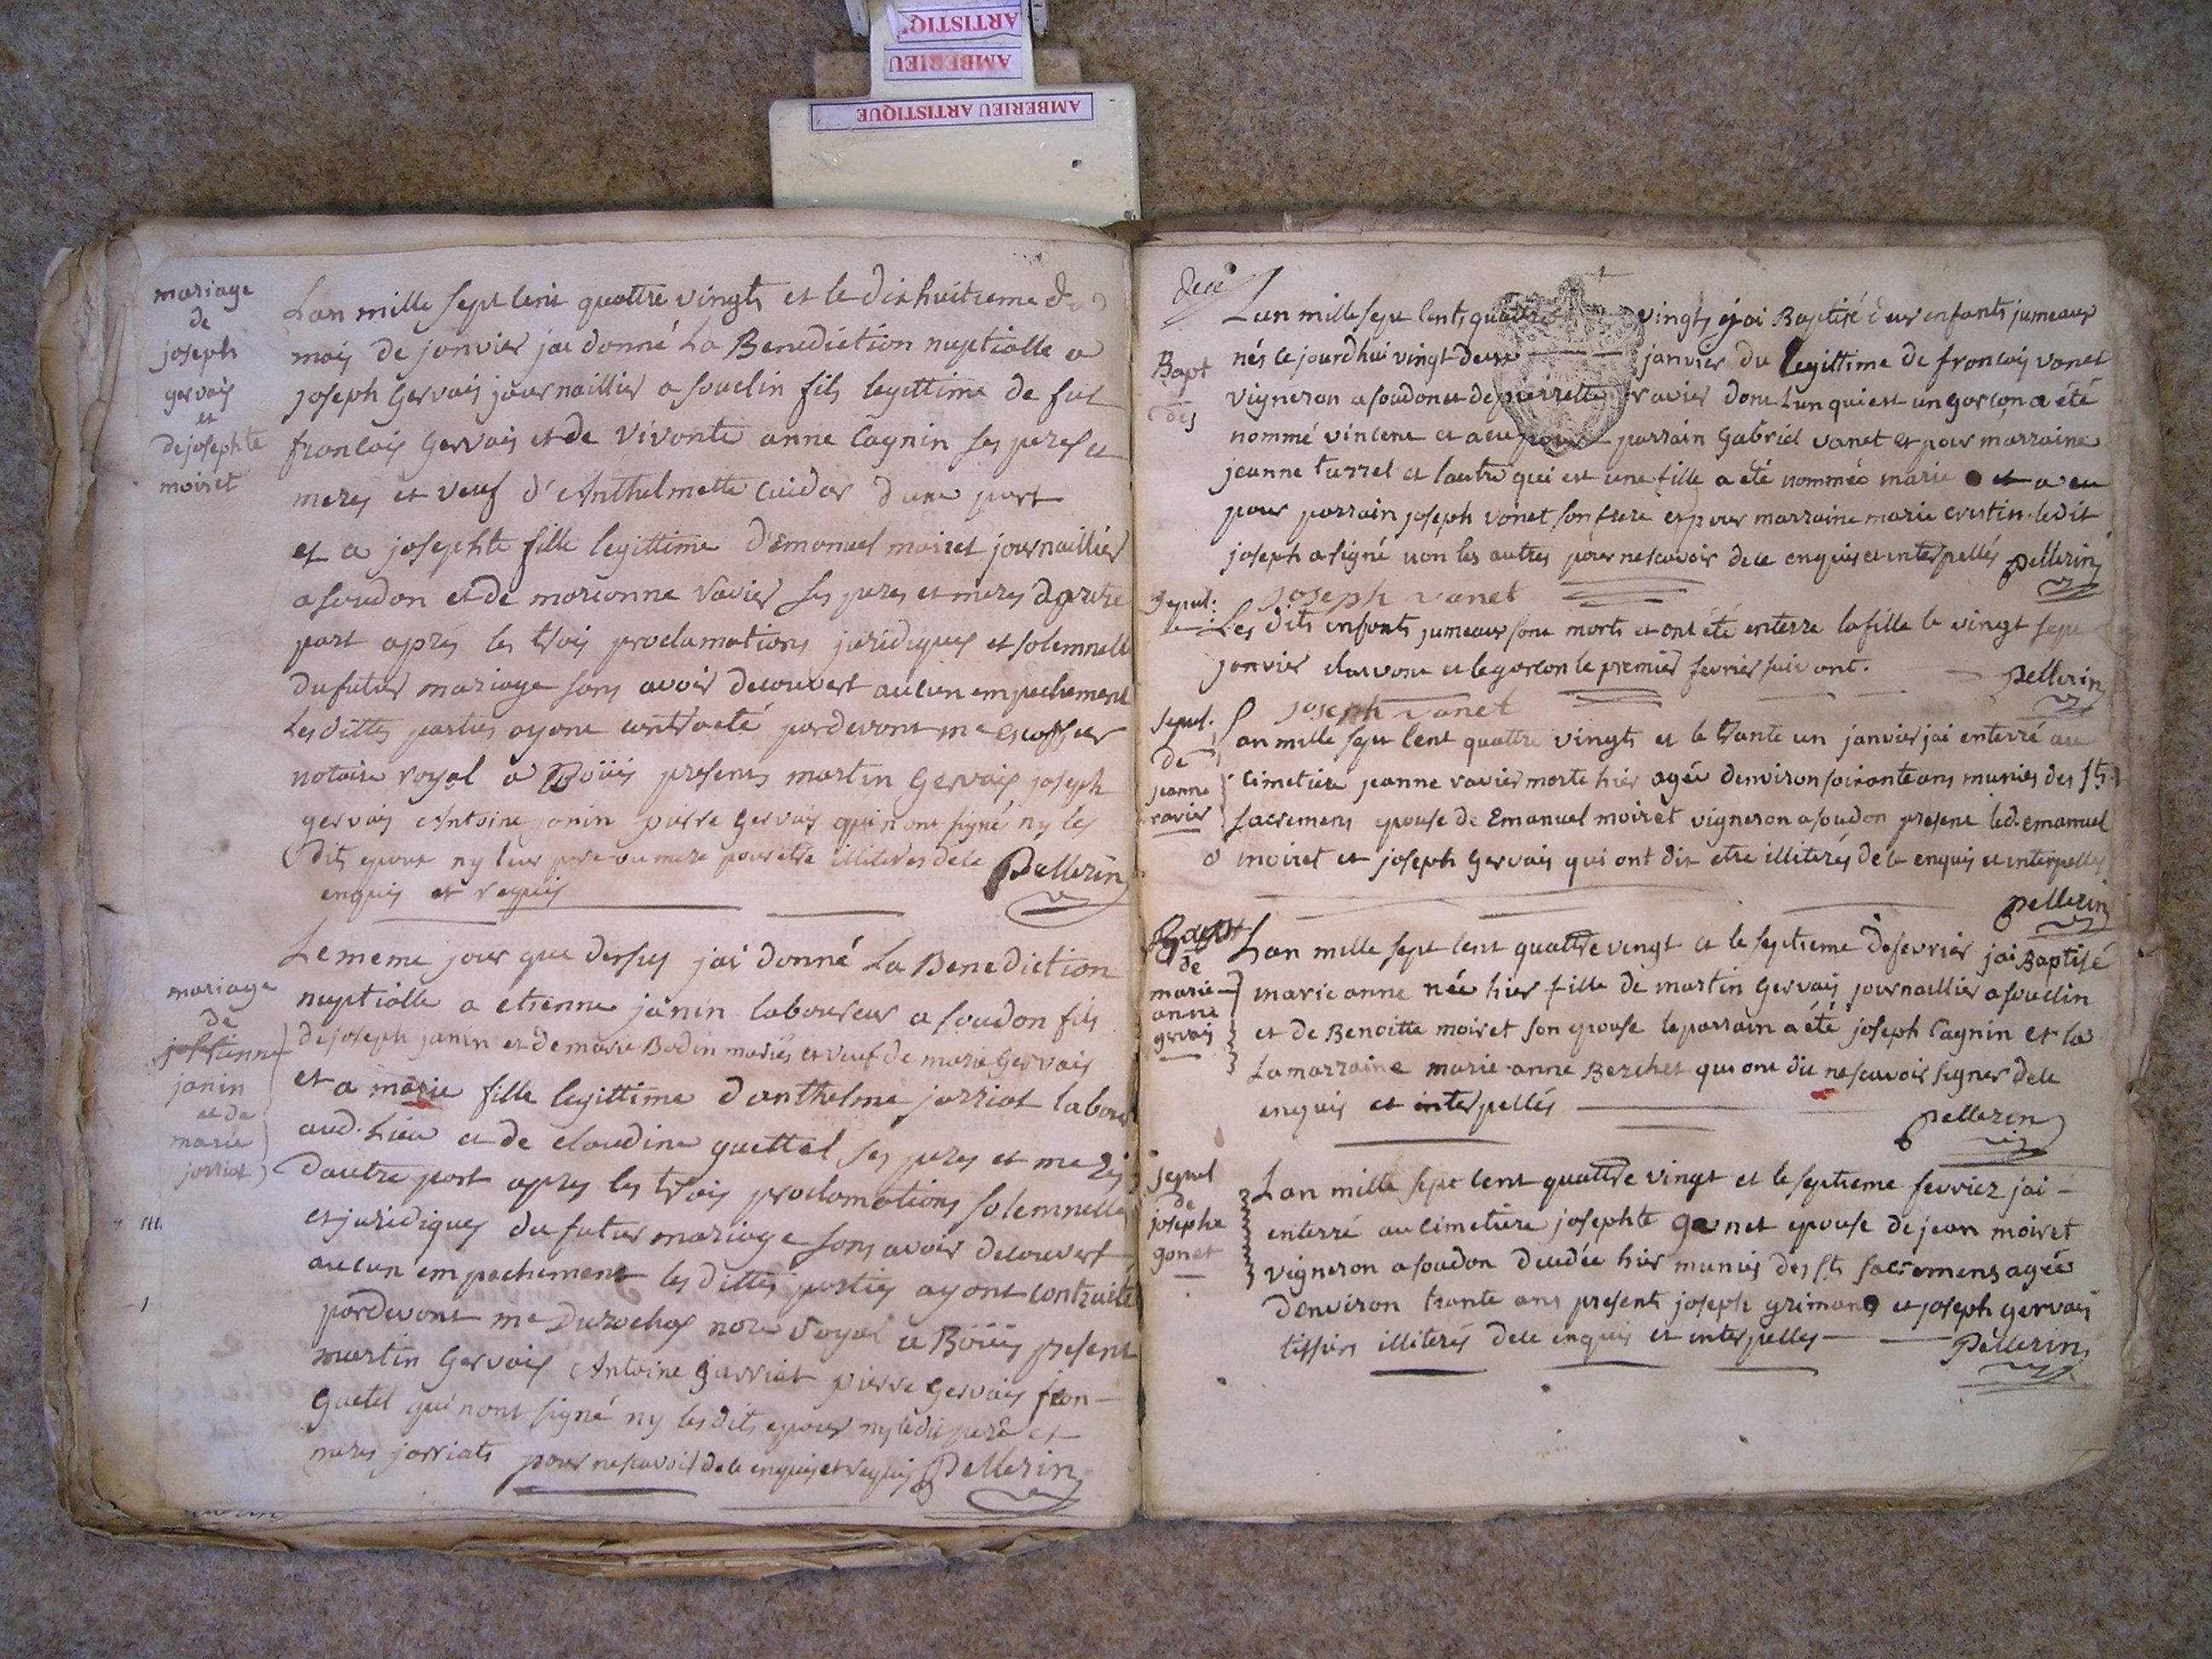 ARTISTIQ
AMBERIEU
AMBERIEU ARTISTIQUE
mariage
de
joseph
gervais
et
de josephte
moiret
Lan mille sept cent quattre vingts et le dix huitieme du
mois de janvier jai donné La Benediction nuptialle a
joseph Gervais journaillier a soudin fils legittime de fut
francois Gervais et de vivante anne Cagnin ses peres et
meres et veuf d'Anthelmette Cuidar dune part
et a josephte fille legittime d'Emanuel moiret journaillier
a soudon et de marianne Ravier ses peres et meres dautre
part aprés les trois proclamations juridiques et solemnell
du futur mariage sans avoir decouvert aucun empechement
Les dittes parties ayant contracté pardevant me escoffier
notaire royal a presents martin Gervais joseph
gervais Antoine janin pierre Gervais qui n ont signé ny les
dits epoux ny leur pere ou mere pour etre illiteres de ce
enquis et requis Pellerin
mariage
de
etienne
janin
et de
marie
jarriat
Le meme jour que dessus jai donné La Benediction
nuptialle a etienne janin laboureur a soudon fils
de joseph janin et de marie Bodin mariés et veuf de marie Gervais
et a marie fille legittime d'anthelme jarriat labour
aud. Lieu et de claudine guettel ses peres et meres
dautre part apres les trois proclamations solemnelle
et juridiques du futur mariage sans avoir decouvert
aucun empechement les dittes parties ayant contracté
pardevant me Durochas nore Royal a present
martin Gervais Antoine jarriat pierre Gervais fran-
Guetel qui n ont signé ny les dits epoux ny le dit pere et
meres jarriats pour ne scavoir de ce enquis et requis Pellerin
Bapt
des
Lan mille sept cents quattre vingts jai Baptisé deux enfants jumeaux
nés ce jourdhui vingt deux janvier du legittime de francois vanet
vigneron a soudon et de pierrette ravier dont Lun qui est un garcon a été
nommé vincent et a eu pour parrain Gabriel vanet et pour marraine
jeanne turrel et lautre qui est une fille a été nommée marie et a eu
pour parrain joseph vanet son frere et pour marraine marie cristin ledit
joseph a signé non les autres pour ne scavoir de ce enquis et interpellés pellerin
joseph vanet
Sepul:
Les dits enfants jumeaux sont morts et ont été enterre la fille le vingt sept
janvier et le garcon le premier fevrier suivant. Pellerin
joseph vanet
Sepul.
de
jeanne
ravier
Lan mille sept cent quattre vingts et le trante un janvier jai enterré au
Cimetiere jeanne ravier morte hier agée denviron soixante ans munies des sts
sacremens epouse de Emanuel moiret vigneron a soudon present led. emanuel
moiret et joseph Gervais qui ont dit etre illiterés de ce enquis et interpellés
pellerin
Bapt
de
marie-
anne
gervais
Lan mille sept cent quattre vingt et le septieme de fevrier jai Baptisé
marie anne née hier fille de martin Gervais journaillier a soudin
et de Benoitte moiret son epouse le parrain a été joseph Cagnin et la
La marraine marie anne Berchet qui ont dit ne scavoir signer de ce
enquis et interpellés pellerin
sepul
de
josephte
gonet
Lan mille sept cent quattre vingt et le septieme fevrier jai -
enterré au cimetiere josephte Gonet epouse de jean moiret
vigneron a soudon decedée hier munies des sts sacremens agée
denviron trante ans presents joseph grimand et joseph gervais
tissiers illiterés de ce enquis et interpellés Pellerin